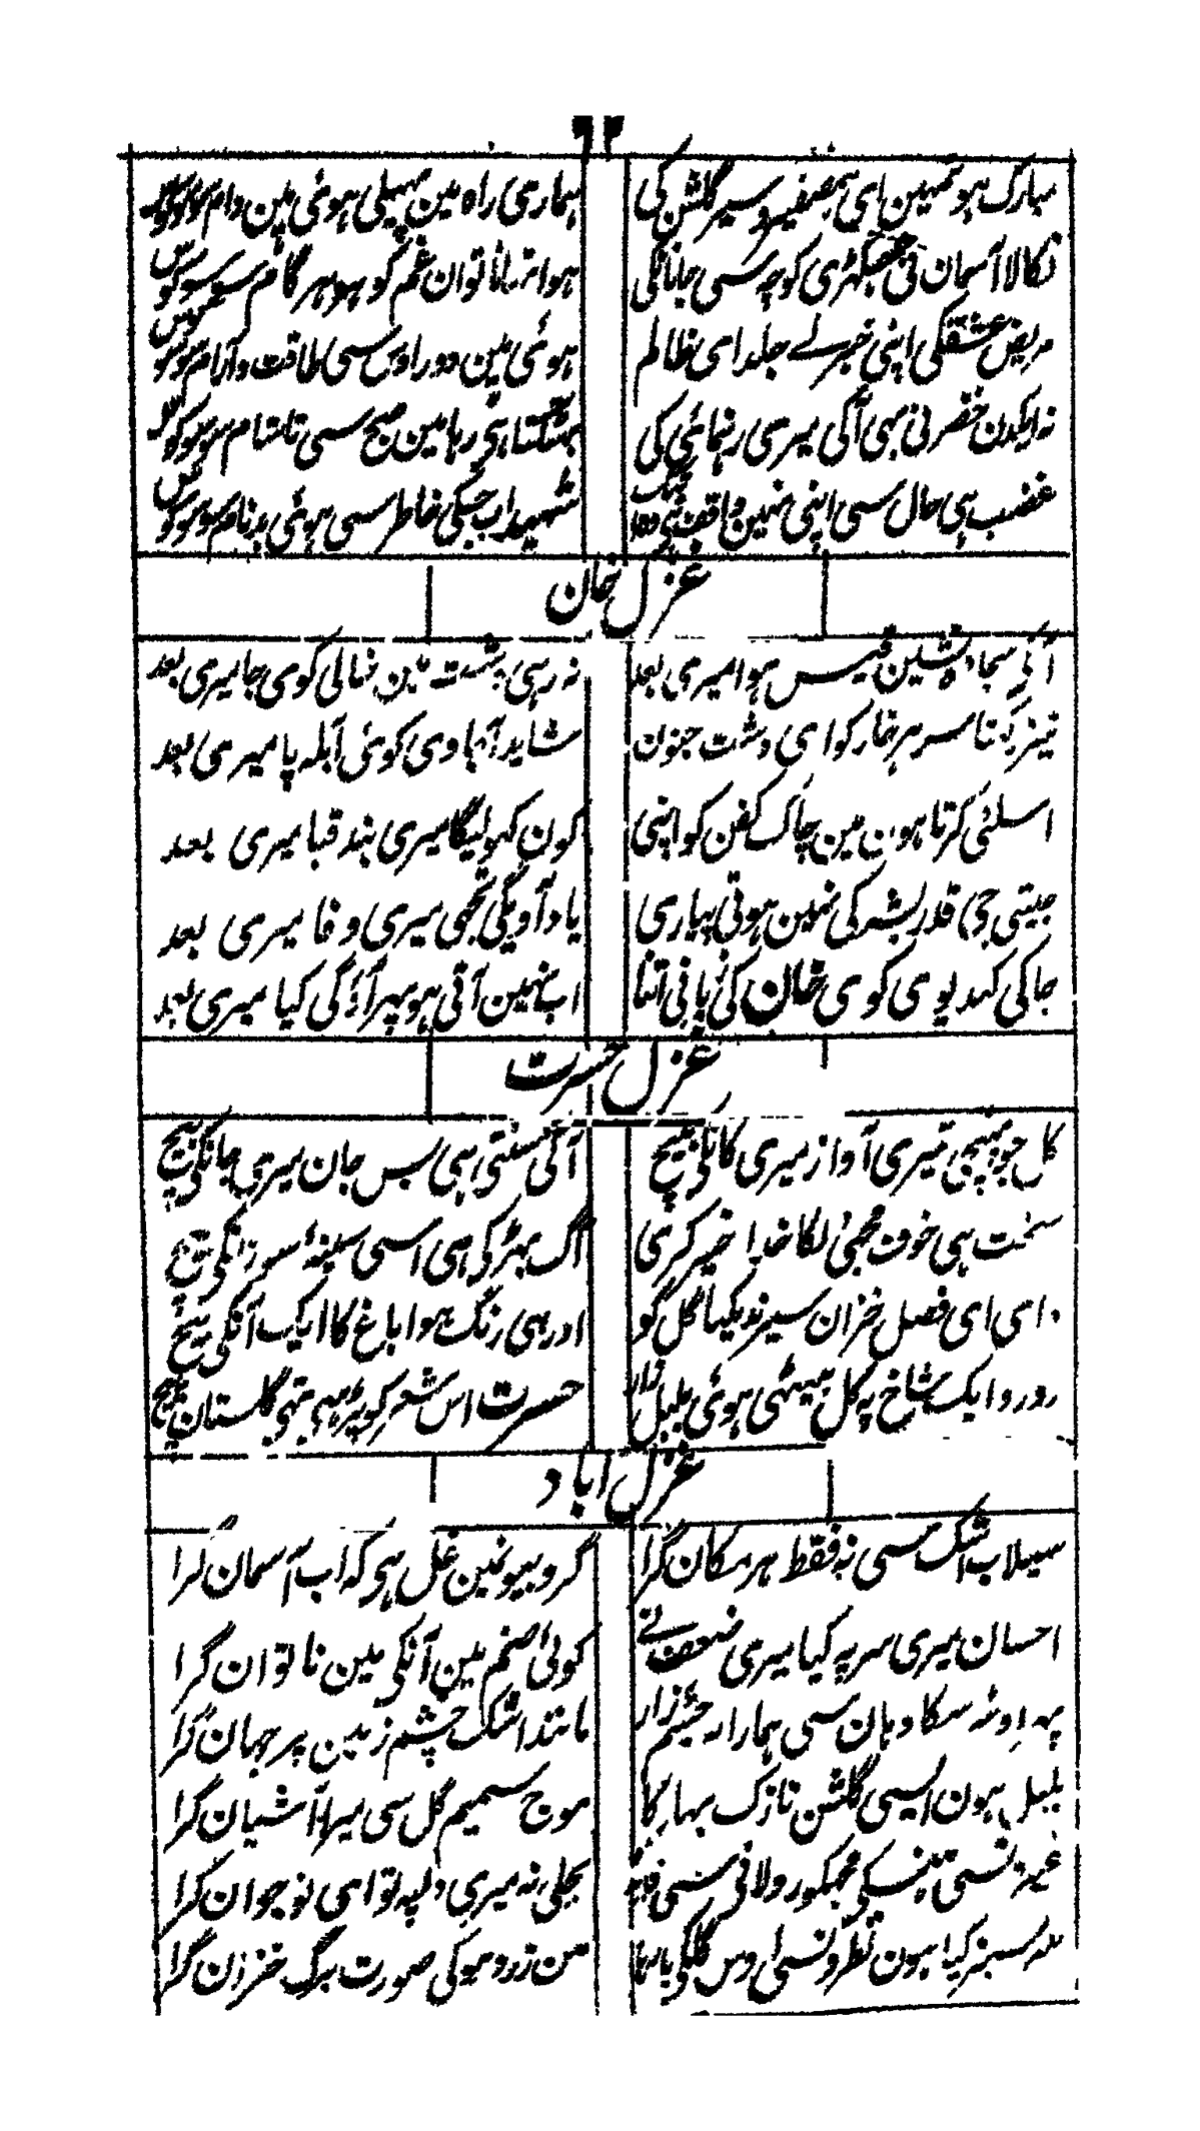 ۶۳
مبارک ہو تمہین ای ہمصفیرو سیر گلشن کی
ہماری راہ مین پہیلی ہوئی ہین دام سو سو کوس
نکالا آسمان نی جسگہڑی کوچہ سی جانانکی
ہوا نا توان غم کو ہر ہر گام سو سو کوس
مریض عشقکی اپنی خبر لے جلد ای ظالم
ہوئی ہین دور اوس سی طاقت و آرام سو سو کوس
نہ اکدن خضر نی بہی آکی میری رہنمائی کی
بہٹکتا ہی رہا مین صبح سی تا شام سو سو کوس
غضب ہی حال سی اپنی نہین واقف ہی وہ ابتک
شہید اب جسکی خاطر سی ہوئی بدنام سو سو کوس
غزل خان
آکی سجادہ نشین قیس ہوا میری بعد
نہ رہی دشت مین خالی کوی جا میری بعد
تیز رکہنا سر ہر خار کو ای دشت جنون
شاید آجاوی کوئی آبلہ پا میری بعد
اسلئی کرتا ہون مین چاک کفن کو اپنی
کون کہولیگا میری بند قبا میری بعد
جیتی جی قدر بشر کی نہین ہوتی پیاری
یاد آویگی تجہی میری وفا میری بعد
جاکی کہدیوی کوی خان کی زبانی اتنا
اب نہین آتی ہو پہر آؤگی کیا میری بعد
غزل حسرت
کل جو پہنچی تیری آواز میری کانکی بیچ
آگئی سنتی ہی بس جان میری جانکی بیچ
سخت ہی خوف مجہی لگا خدا خیر کری
آگ بہڑکی ہی اسی سینۂ سوزانکی بیچ
وای ای فصل خزان سیر ندیکہا گل کو
اور ہی رنگ ہوا باغ کا ایک آنکی بیچ
رو رو ایک شاخ پہ کل بیٹہی ہوئی بلبل زار
حسرت اس شعر کو پڑہی تہی گلستان بیچ
غزل آباد
سیلاب اشک سی نہ فقط ہر مکان گرا
کروبیونمین غل ہی کہ اب آسمان گرا
احسان میری سر پہ کیا میری ضعف نے
کوئی صنم مین آنکی مین ناتوان گرا
پہر اوٹہ سکا وہان سی ہمارا نہ جسم زار
مانند اشک چشم زمین پر جہان گرا
بلبل ہون ایسی گلشن نازک بہار کا
موج شمیم گل سی میرا آشیان گرا
غیرونسی ہنسکی مجہکو رولانی سی
بجلی نہ میری دلپہ تو ای نوجوان گرا
سر سبز کیا ہون نظرونسی اوس گلکی
مین زرد ہوکی صورت برگ خزان گرا